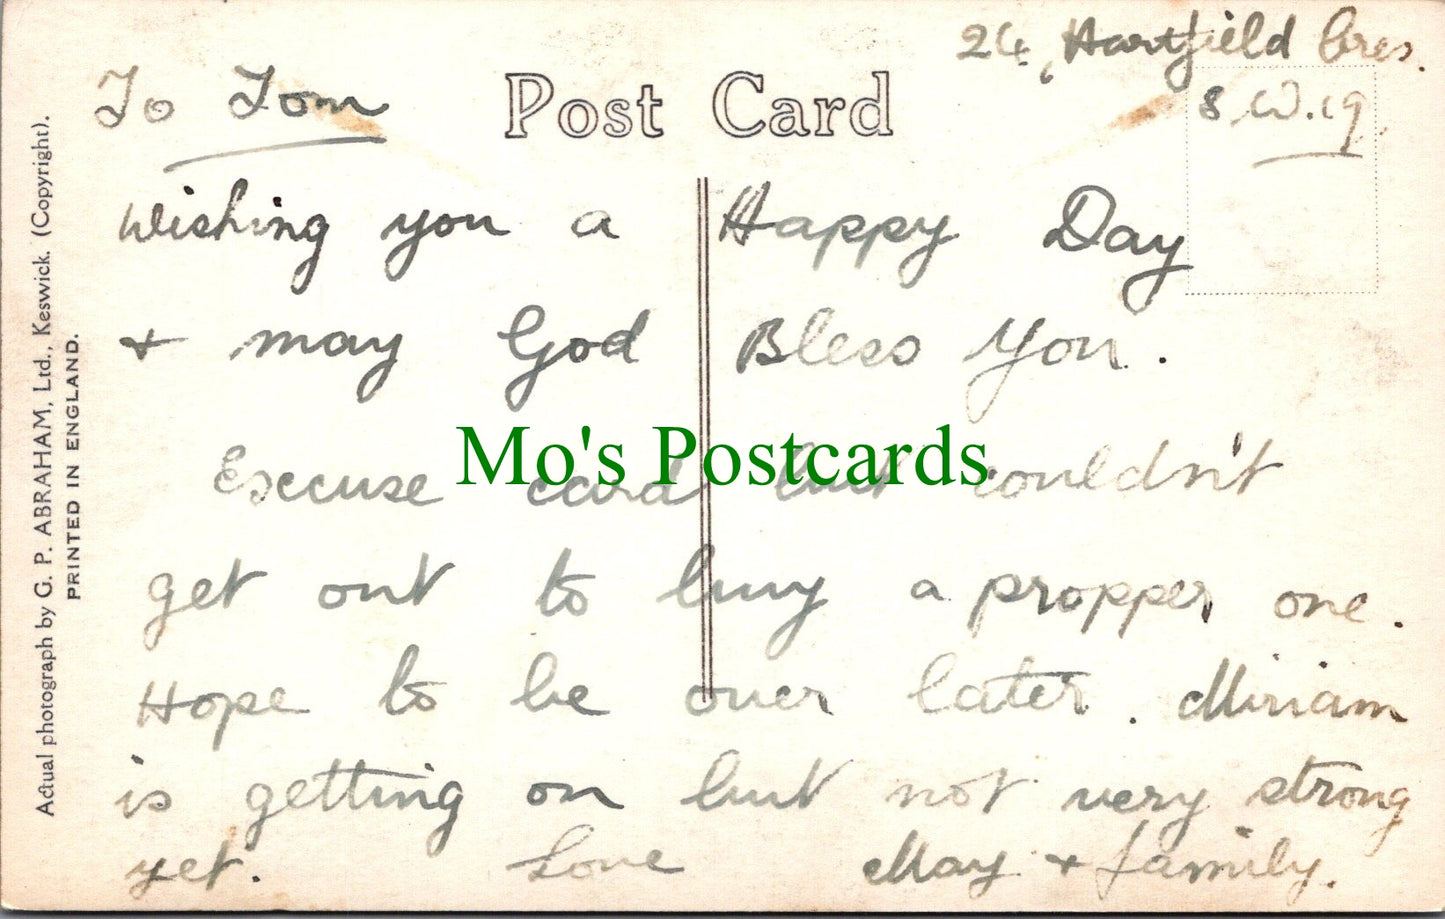 24, Hartfield Cres.
S.W.19.
Post Card
To Tom
Wishing you a Happy Day
+ may God Bless You.
Excuse card but couldn't
get out to buy a propper one.
Hope to be over later. Miriam
is getting on but not very strong
yet. Love May + family.
Mo's Postcards
Actual photograph by G. P. ABRAHAM, Ltd., Keswick. (Copyright).
PRINTED IN ENGLAND.